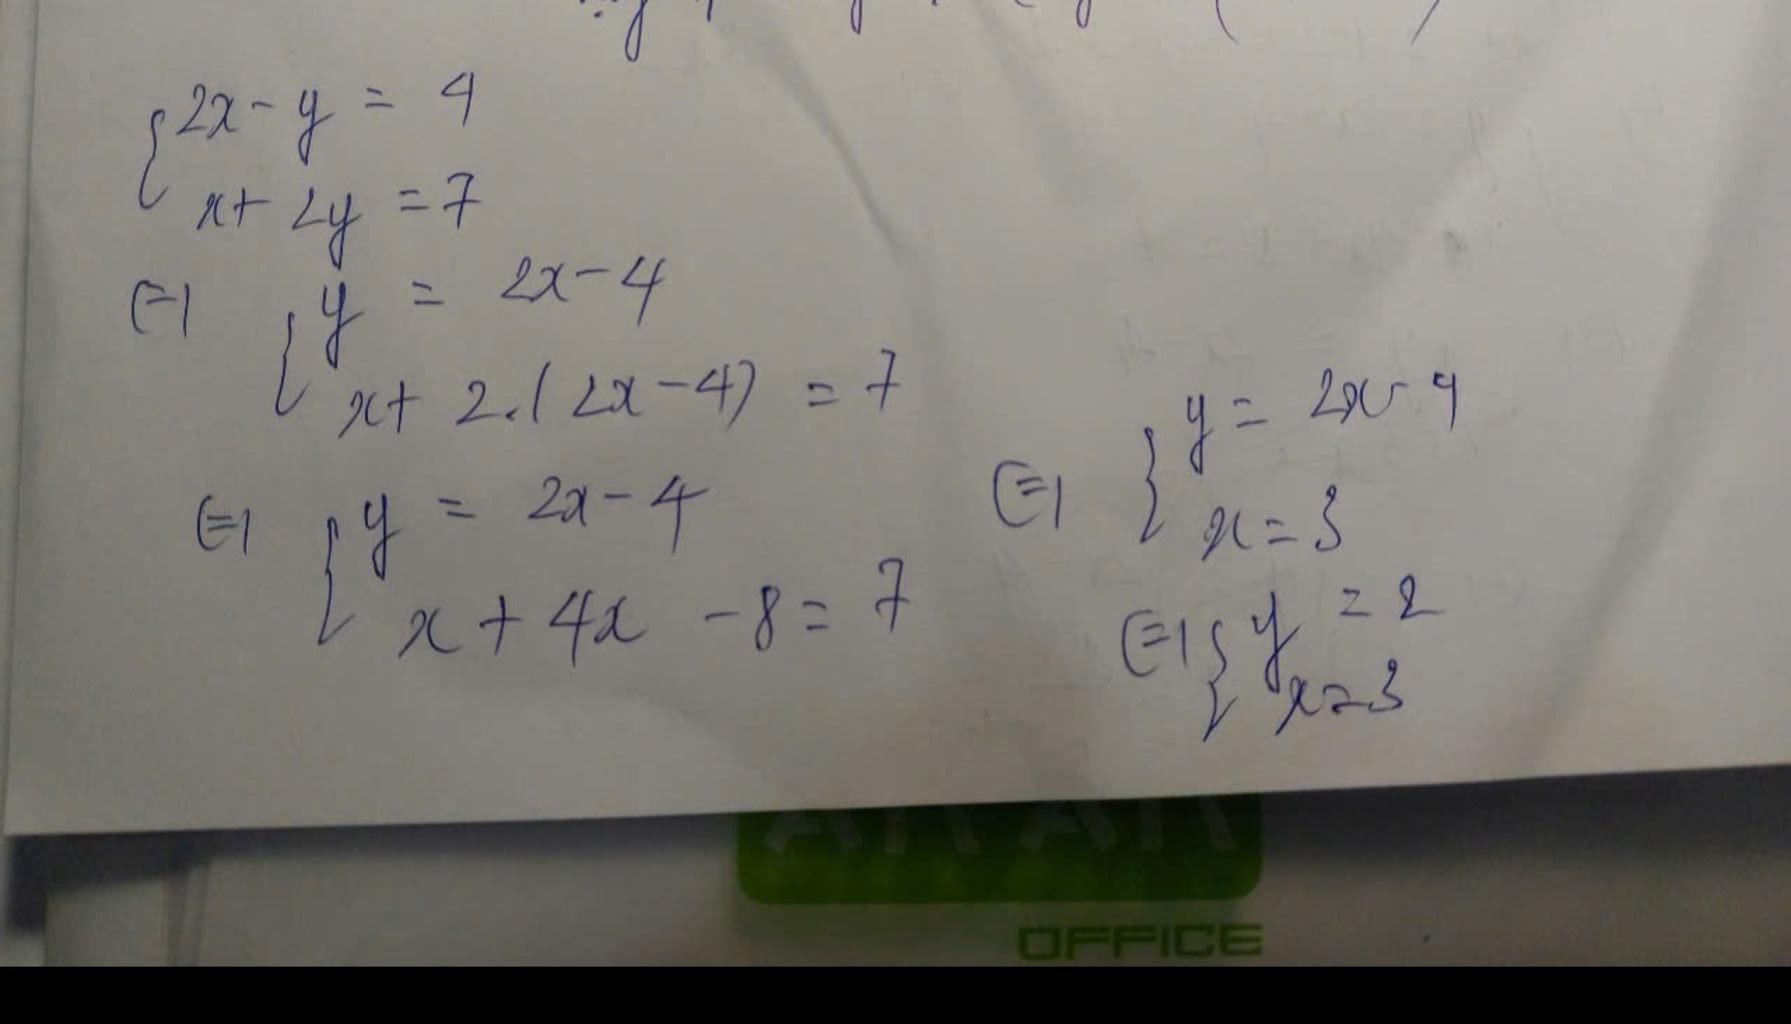 {2x - y = 4
x + 2y = 7
(=) {y = 2x - 4
x + 2.(2x - 4) = 7
(=) {y = 2x - 4
x + 4x - 8 = 7
(=) {y = 2x - 4
x = 3
(=) {y = 2
x = 3
OFFICE